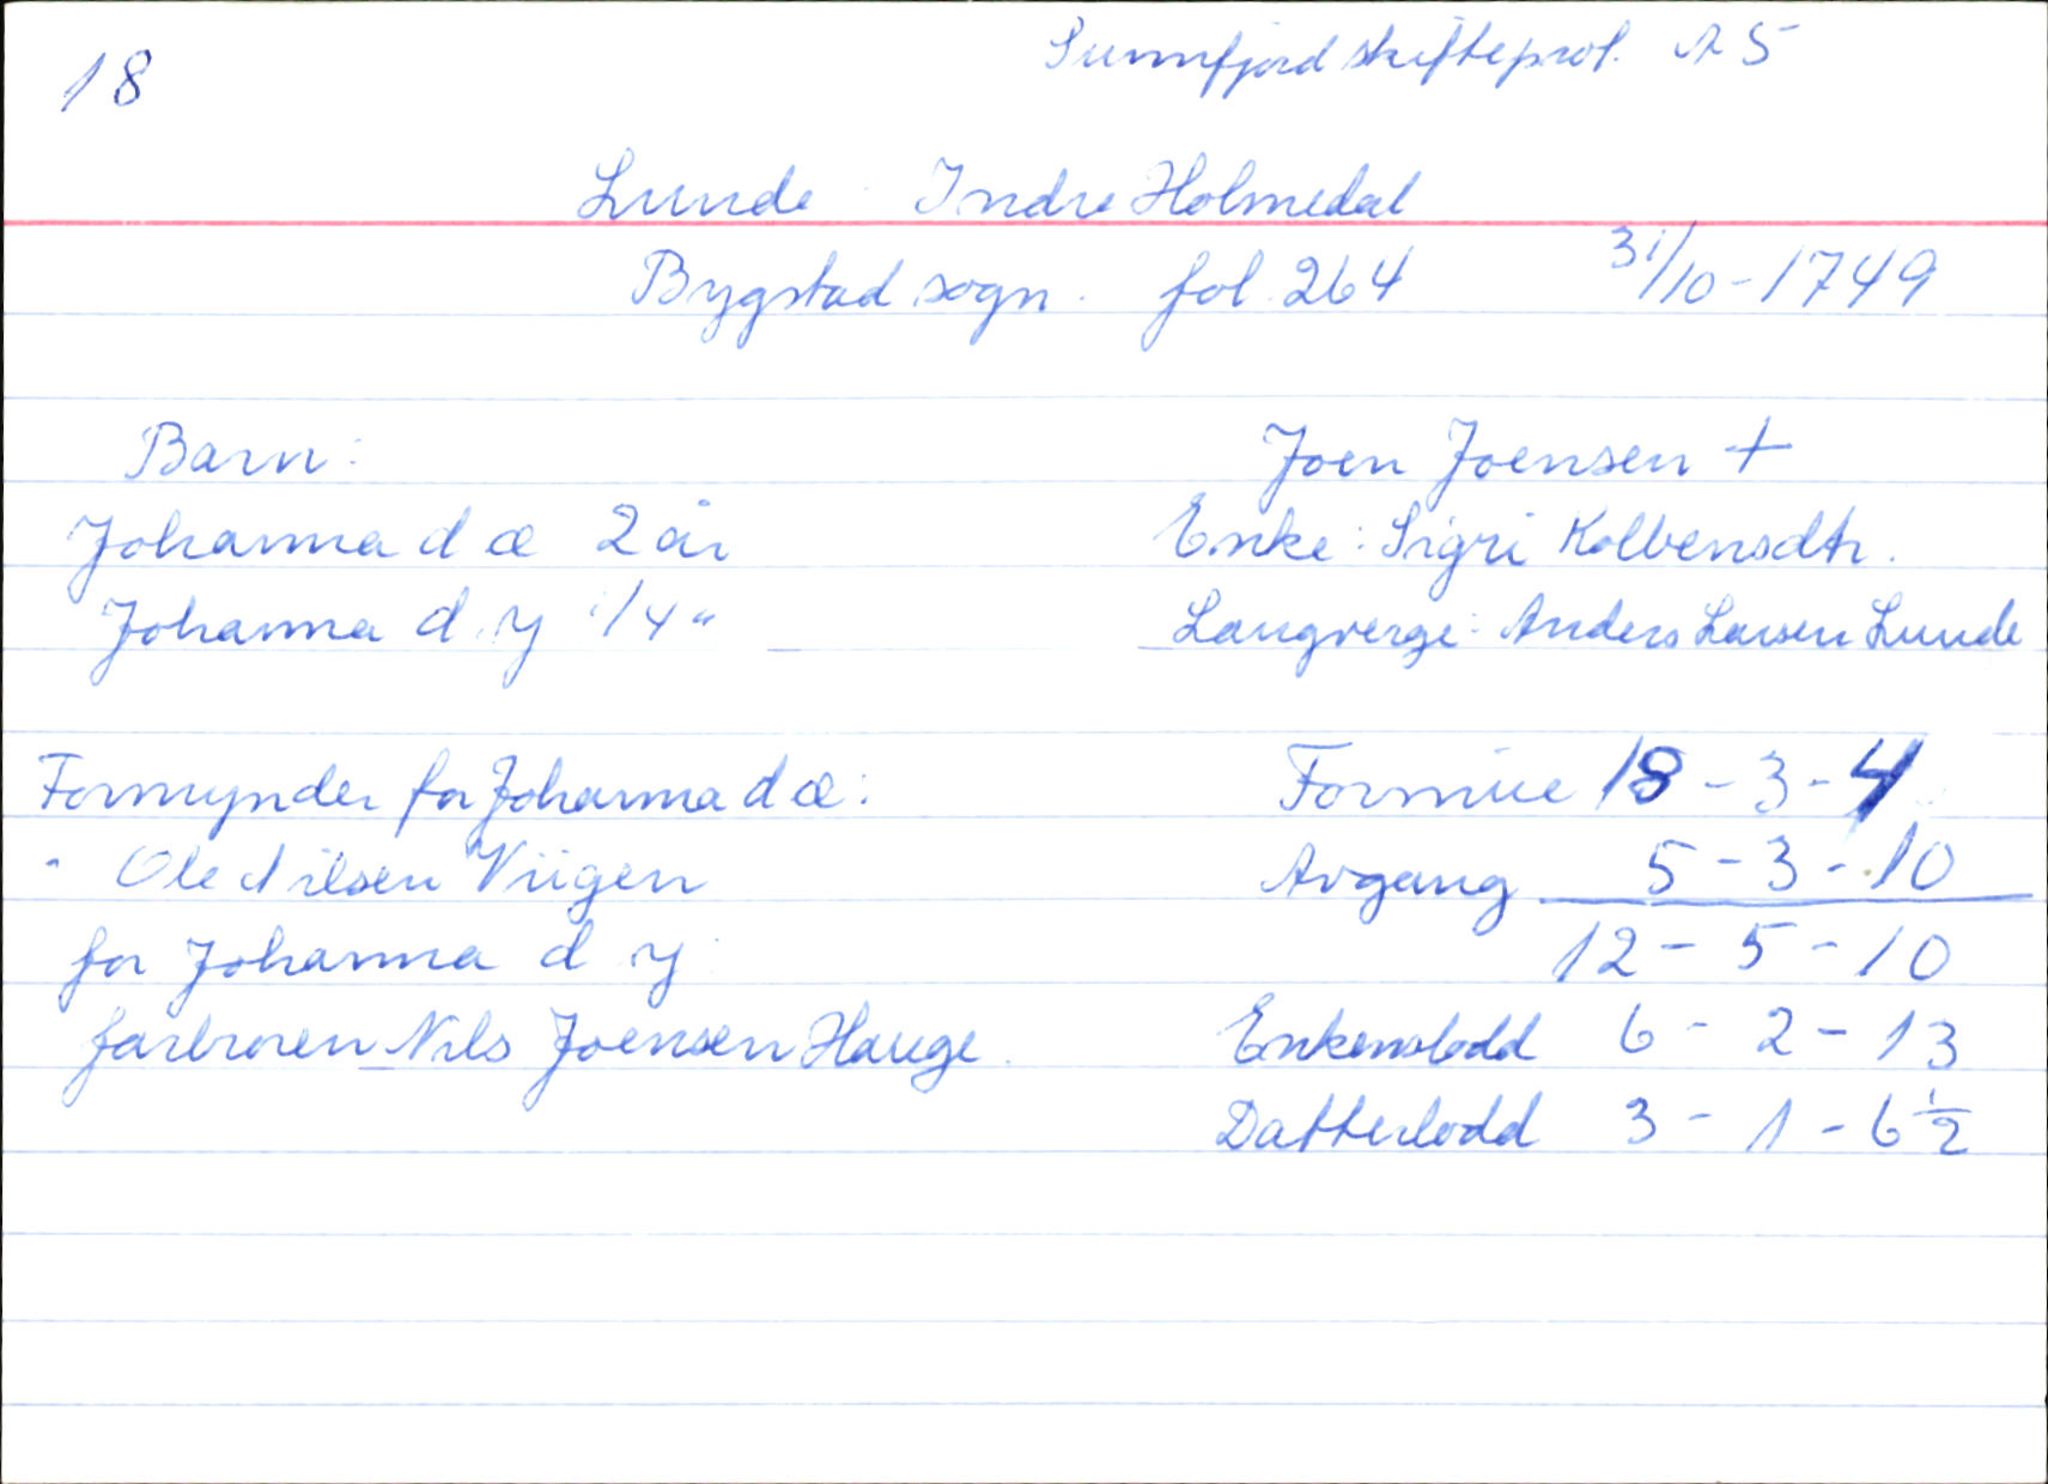 18
Sunnfjord skifteprot. A 5
Lunde Indre Holmedal
Bygstad sogn. fol. 264 31/10-1749
Barn:
Johanna d æ 2 år
Johanna d. y 1/4 "
Joen Joensen +
Enke: Sigri Kolbensdtr.
Laugverge: Anders Larsen Lunde
Formynder for Johanna d æ:
Ole Nilsen Viigen
for Johanna d y
farbroren Nils Joensen Hauge.
Formue 18 - 3 - 4
Avgang 5 - 3 - 10
12 - 5 - 10
Enkenslodd 6 - 2 - 13
Datterlodd 3 - 1 - 6 1/2